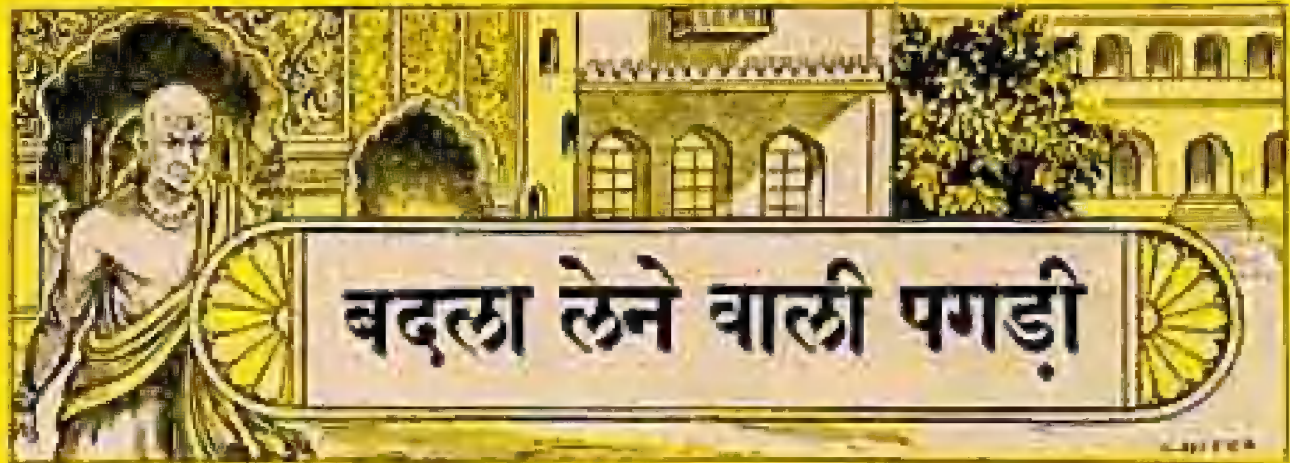 बदला लेने वाली पगड़ी